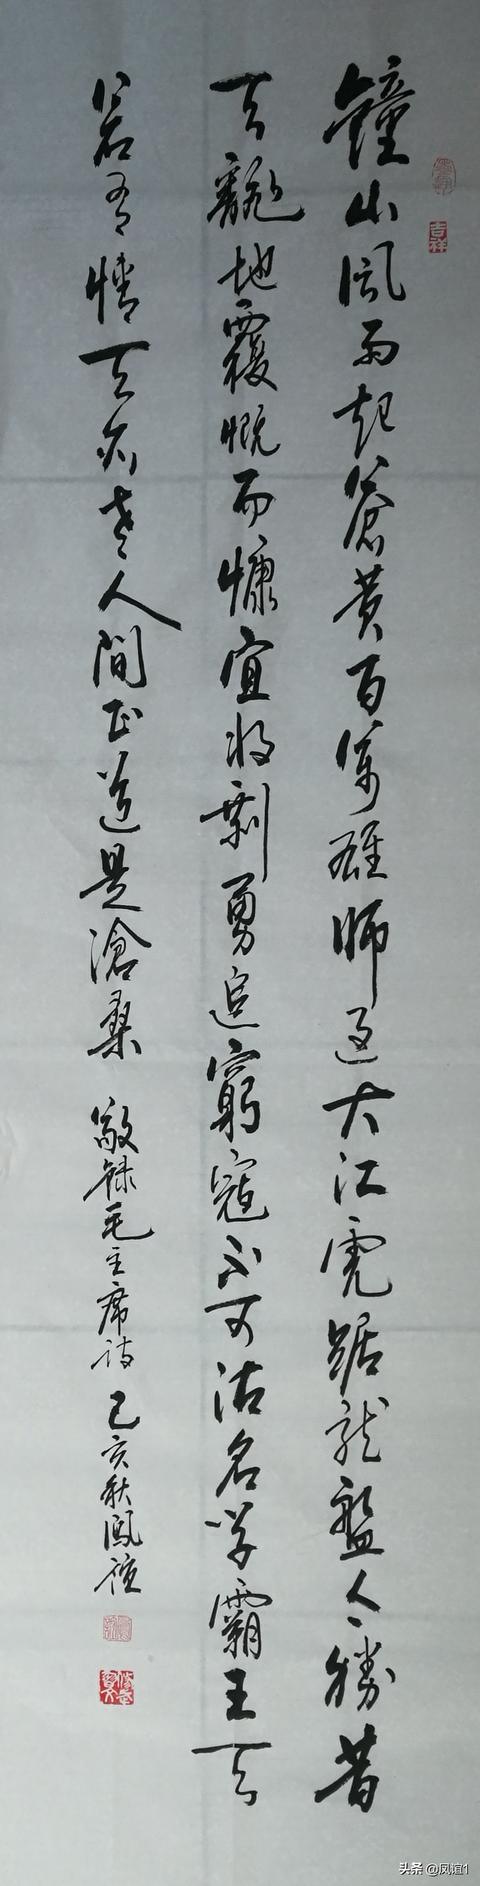 吉祥
鐘山風雨起蒼黄百萬雄师过大江虎踞龙盤今勝昔
天翻地覆慨而慷宜将剩勇追窮寇不可沽名学霸王天
若有情天亦老人間正道是滄桑 敬録毛主席诗 己亥秋鳳谊
头条 @凤谊1